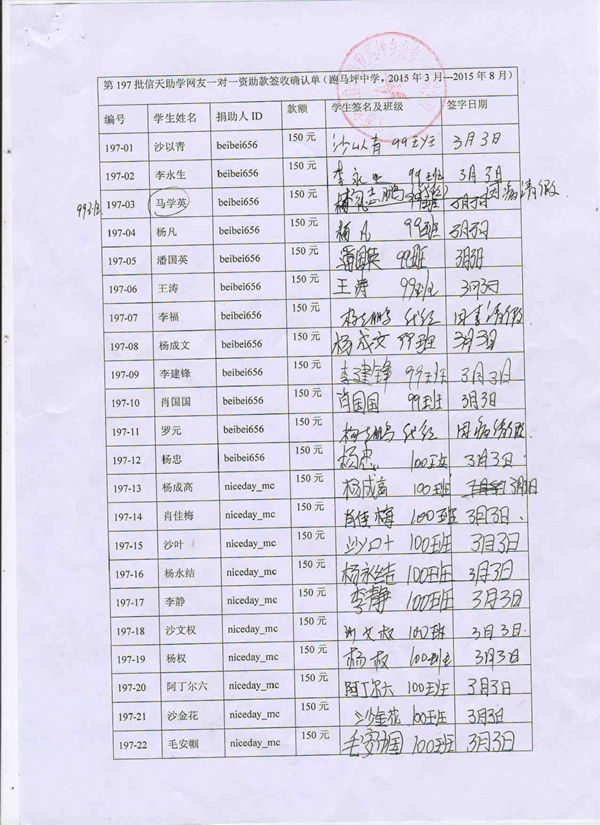 第197批信天助学网友一对一资助款签收确认单（跑马坪中学，2015年3月---2015年8月）
编号 学生姓名 捐助人ID 款额 学生签名及班级 签字日期
197-01 沙以青 beibei656 150元 沙以青 99班 3月3日
197-02 李永生 beibei656 150元 李永生 99班 3月3日
99班 197-03 马学英 beibei656 150元 杨志鹏(代签) 99班 3月3日 因病请假
197-04 杨凡 beibei656 150元 杨凡 99班 3月3日
197-05 潘国英 beibei656 150元 潘国英 99班 3月3日
197-06 王涛 beibei656 150元 王涛 99班 3月3日
197-07 李福 beibei656 150元 杨志鹏 代签 因事请假
197-08 杨成文 beibei656 150元 杨成文 99班 3月3日
197-09 李建锋 beibei656 150元 李建锋 99班 3月3日
197-10 肖国国 beibei656 150元 肖国国 99班 3月3日
197-11 罗元 beibei656 150元 杨志鹏 代签 因病请假
197-12 杨忠 beibei656 150元 杨忠 100班 3月3日
197-13 杨成高 niceday_mc 150元 杨成高 100班 3月3日
197-14 肖佳梅 niceday_mc 150元 肖佳梅 100班 3月3日
197-15 沙叶 niceday_mc 150元 沙叶 100班 3月3日
197-16 杨永结 niceday_mc 150元 杨永结 100班 3月3日
197-17 李静 niceday_mc 150元 李静 100班 3月3日
197-18 沙文权 niceday_mc 150元 沙文权 100班 3月3日
197-19 杨权 niceday_mc 150元 杨权 100班 3月3日
197-20 阿丁尔六 niceday_mc 150元 阿丁尔六 100班 3月3日
197-21 沙金花 niceday_mc 150元 沙金花 100班 3月3日
197-22 毛安帼 niceday_mc 150元 毛安帼 100班 3月3日